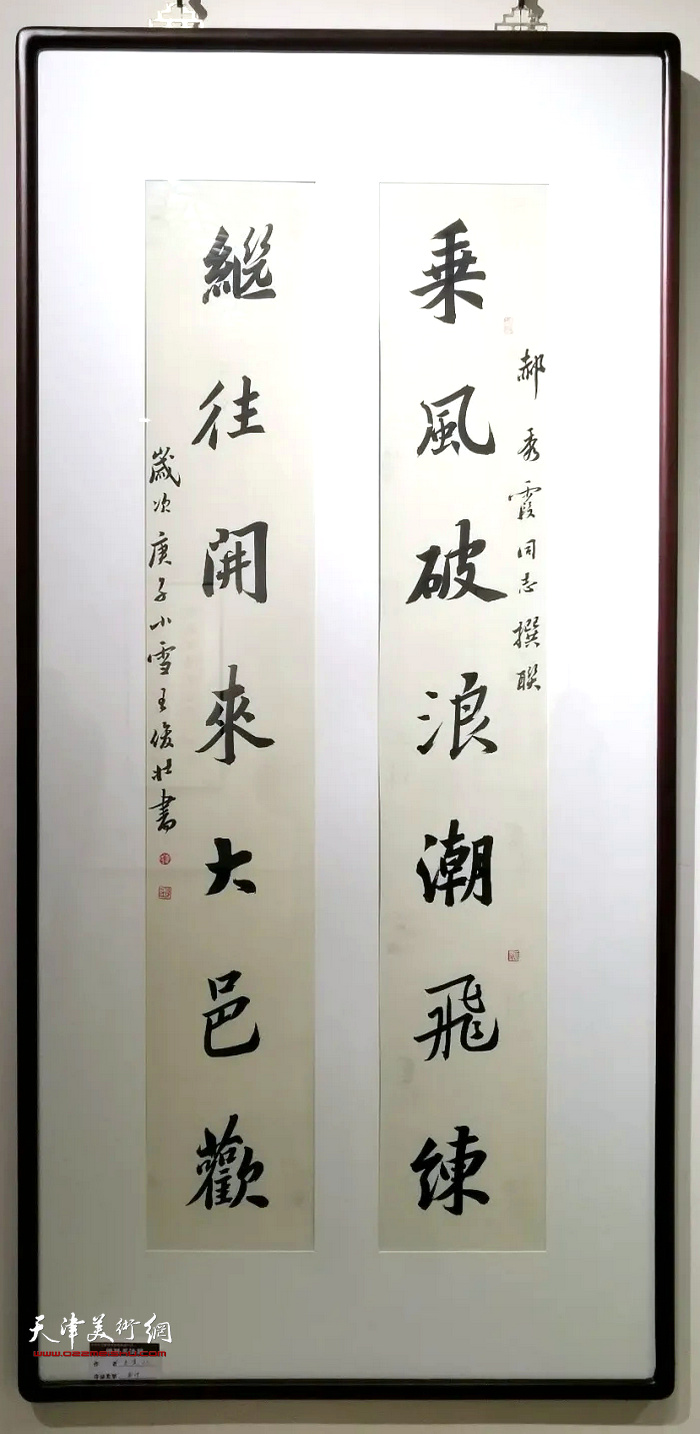 乗風破浪潮飛練
郝秀霞同志撰联
繼往開來大邑歡
歲次庚子小雪王俊壮書
天津美術網